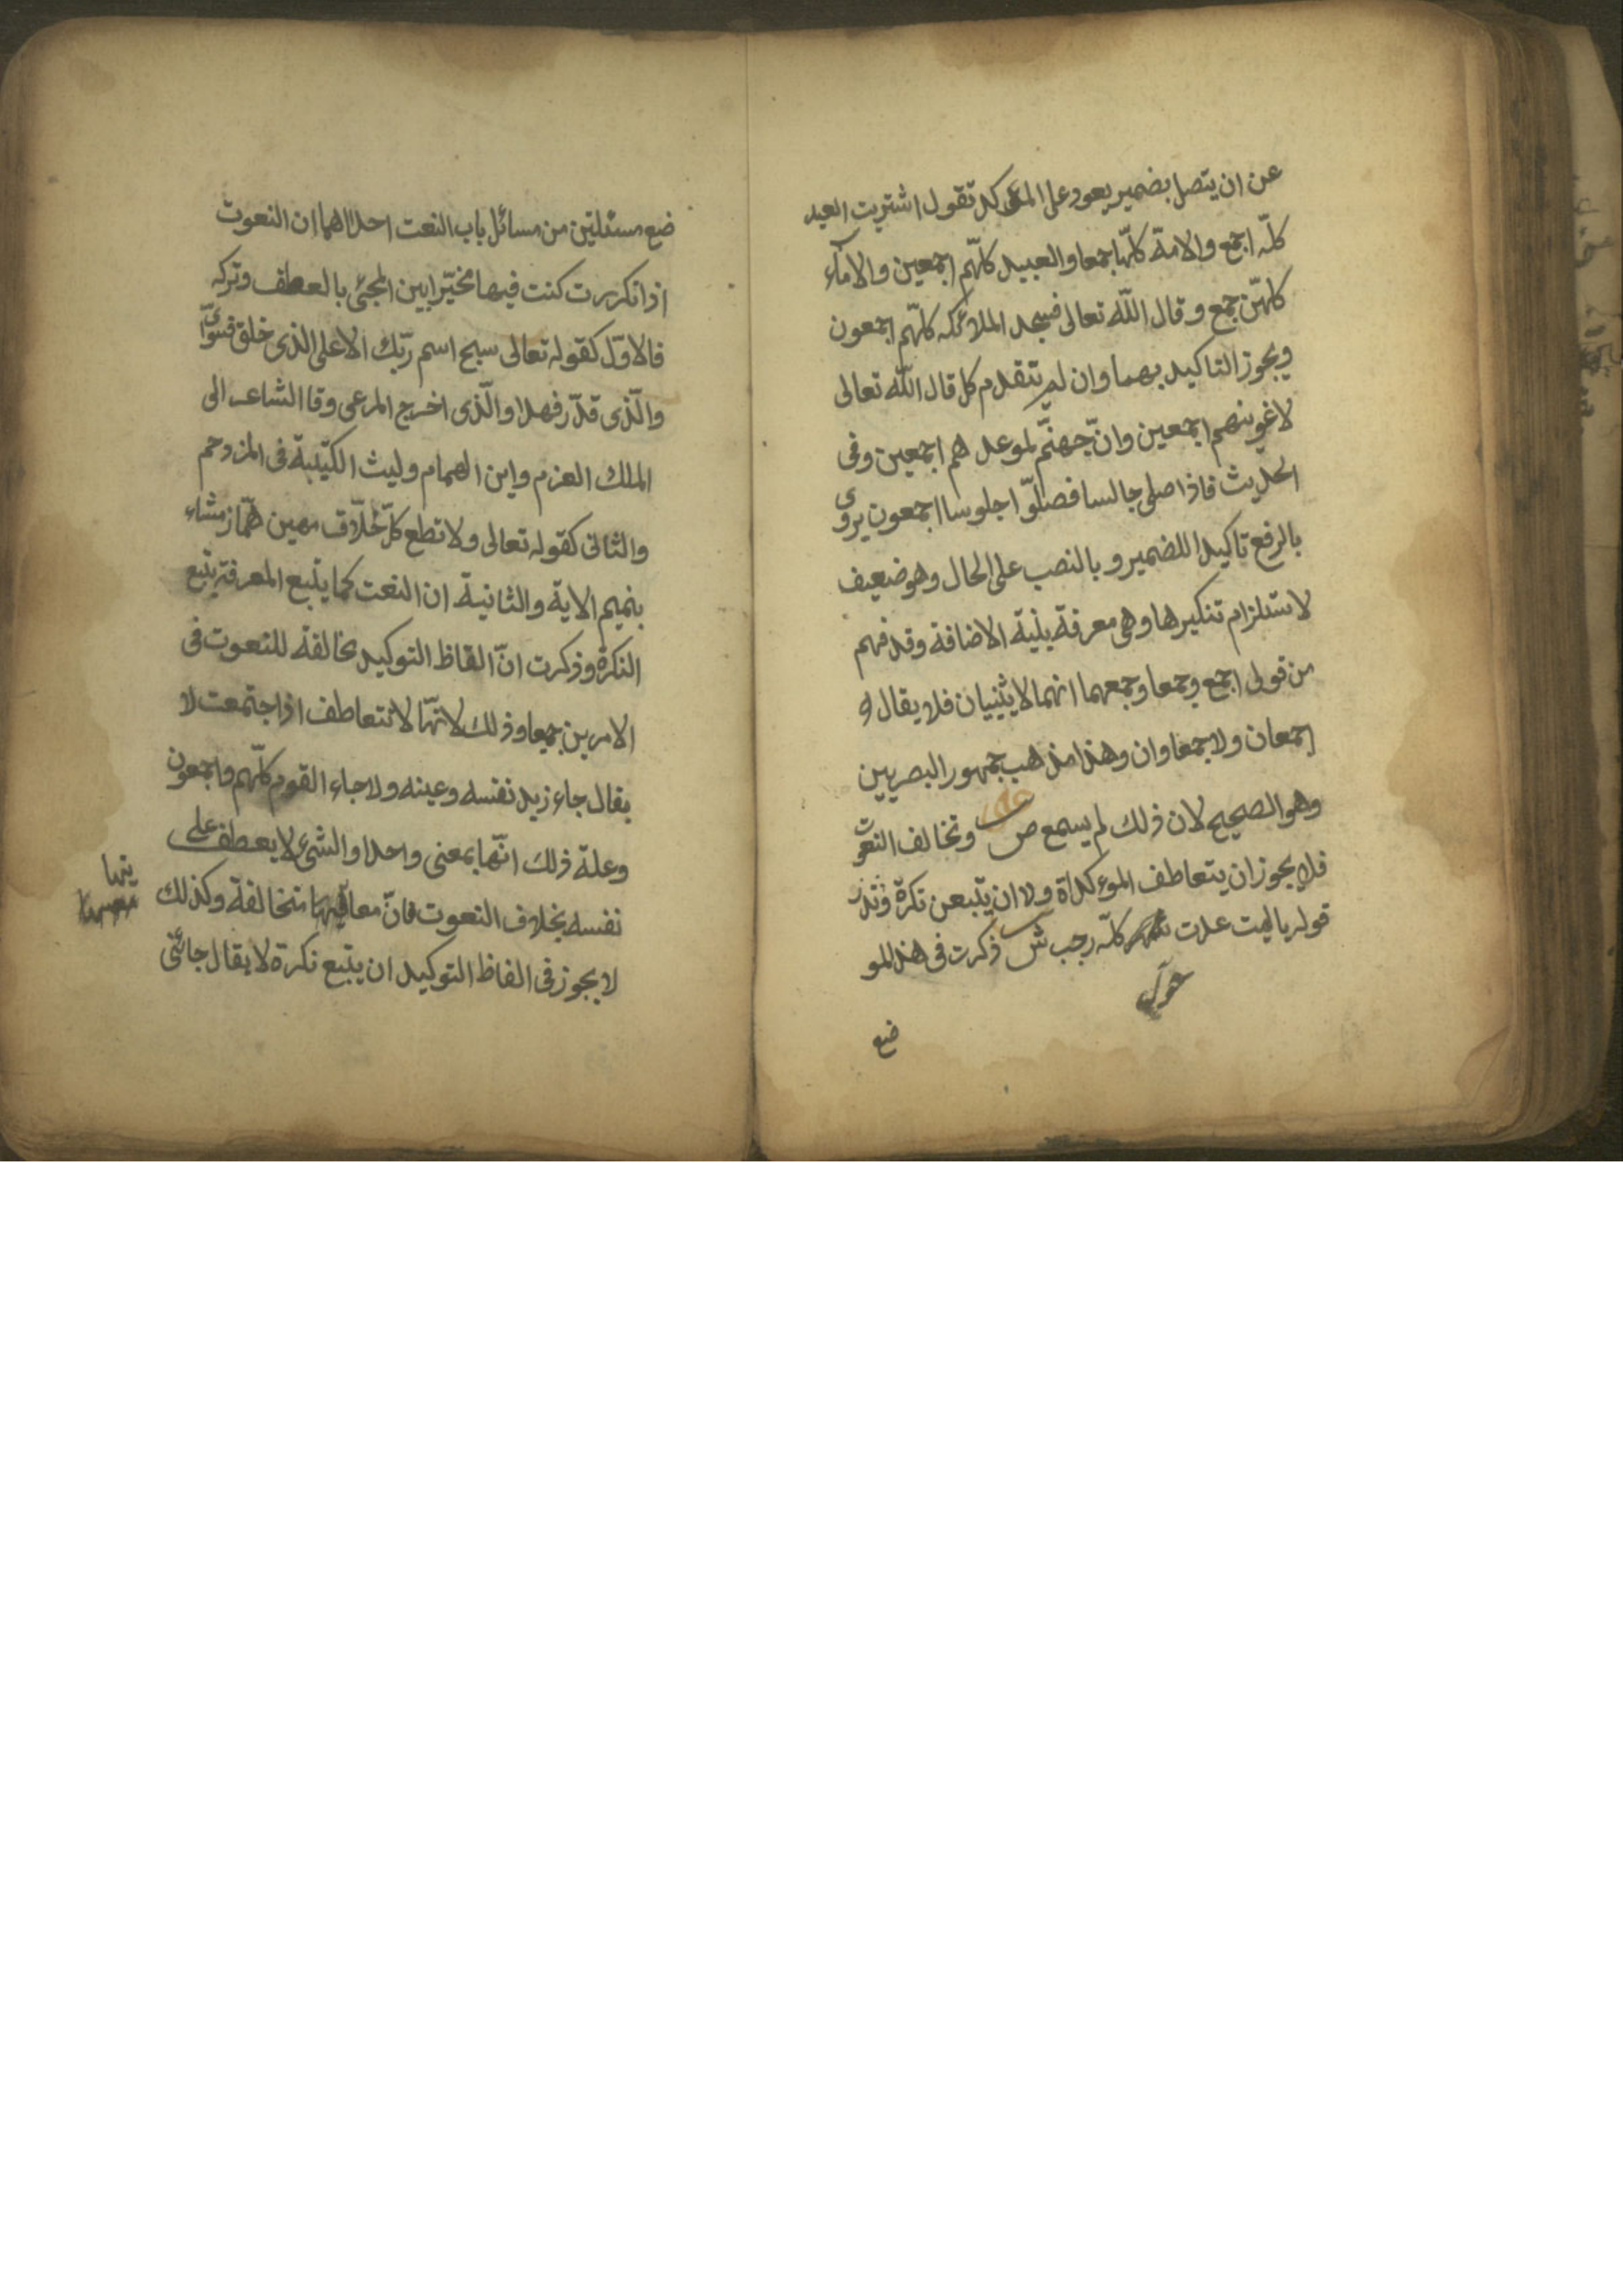 عن ان يتصل بضمير يعود على المؤكد تقول اشتريت العبد
كلّه اجمع والامة كلّها جمعا والعبيد كلّهم اجمعين والامآء
كلهنّ جمع و قال اللّه تعالى فسجد الملائكه كلّهم اجمعون
ويجوز التاكيد بهما وان لم تتقدم كل قال اللّه تعالى
لاغوينهم اجمعين وانّ جهنّم لموعد هم اجمعين وفى
الحديث فاذا صلى جالسا فصلّوا جلوسا اجمعون يروى
بالرفع تاكيدا للضمير و بالنصب على الحال وهو ضعيف
لاستلزام تنكيرها وهى معرفة بنية الاضافة وقد فهم
من قولى اجمع وجمعا وجمعهما انهما لا يثنيان فلا يقال
اجمعان ولا جمعاوان وهذا مذهب جمهور البصريين
وهو الصحيح لان ذلك لم يسمع ص وتخالف النعوت
فلا يجوز ان يتعاطف الموءكدات ولا ان يتبعن نكرة وندر
قوله يا ليت عدت كلّه رجب ش ذكرت فى هذ المو
حول
ضع
ضع مسئلتين من مسائل باب النعت احداهما ان النعوت
اذا تكررت كنت فيها مخيّرا بين المجئى بالعطف وتركه
فالاوّل كقوله تعالى سبح اسم ربّك الاعلى الذى خلق فسوّى
والّذى قدّر فهدا والّذى اخرج المرعى وقا الشاعر الى
الملك العزم وابن الهمام وليث الكتيبة فى المزدحم
والثانى كقوله تعالى ولا تطع كلّ حلّاف مهين همّاز مشاء
بنميم الاية والثانية ان النعت كما يتبع المعرفة يتبع
النكرة وذكرت انّ الفاظ التوكيد مخالفة للنعوت فى
الامرين جميعا وذلك لانّها لا تتعاطف اذا اجتمعت لا
يقال جاء زيد نفسه وعينه ولا جاء القوم كلّهم واجمعون
وعلة ذلك انّها بمعنى واحدا والشئ لا يعطف على
نفسه بخلاف النعوت فانّ معانيها متخالفة وكذلك
لا يجوز فى الفاظ التوكيد ان يتبع نكرة لا يقال جائنى